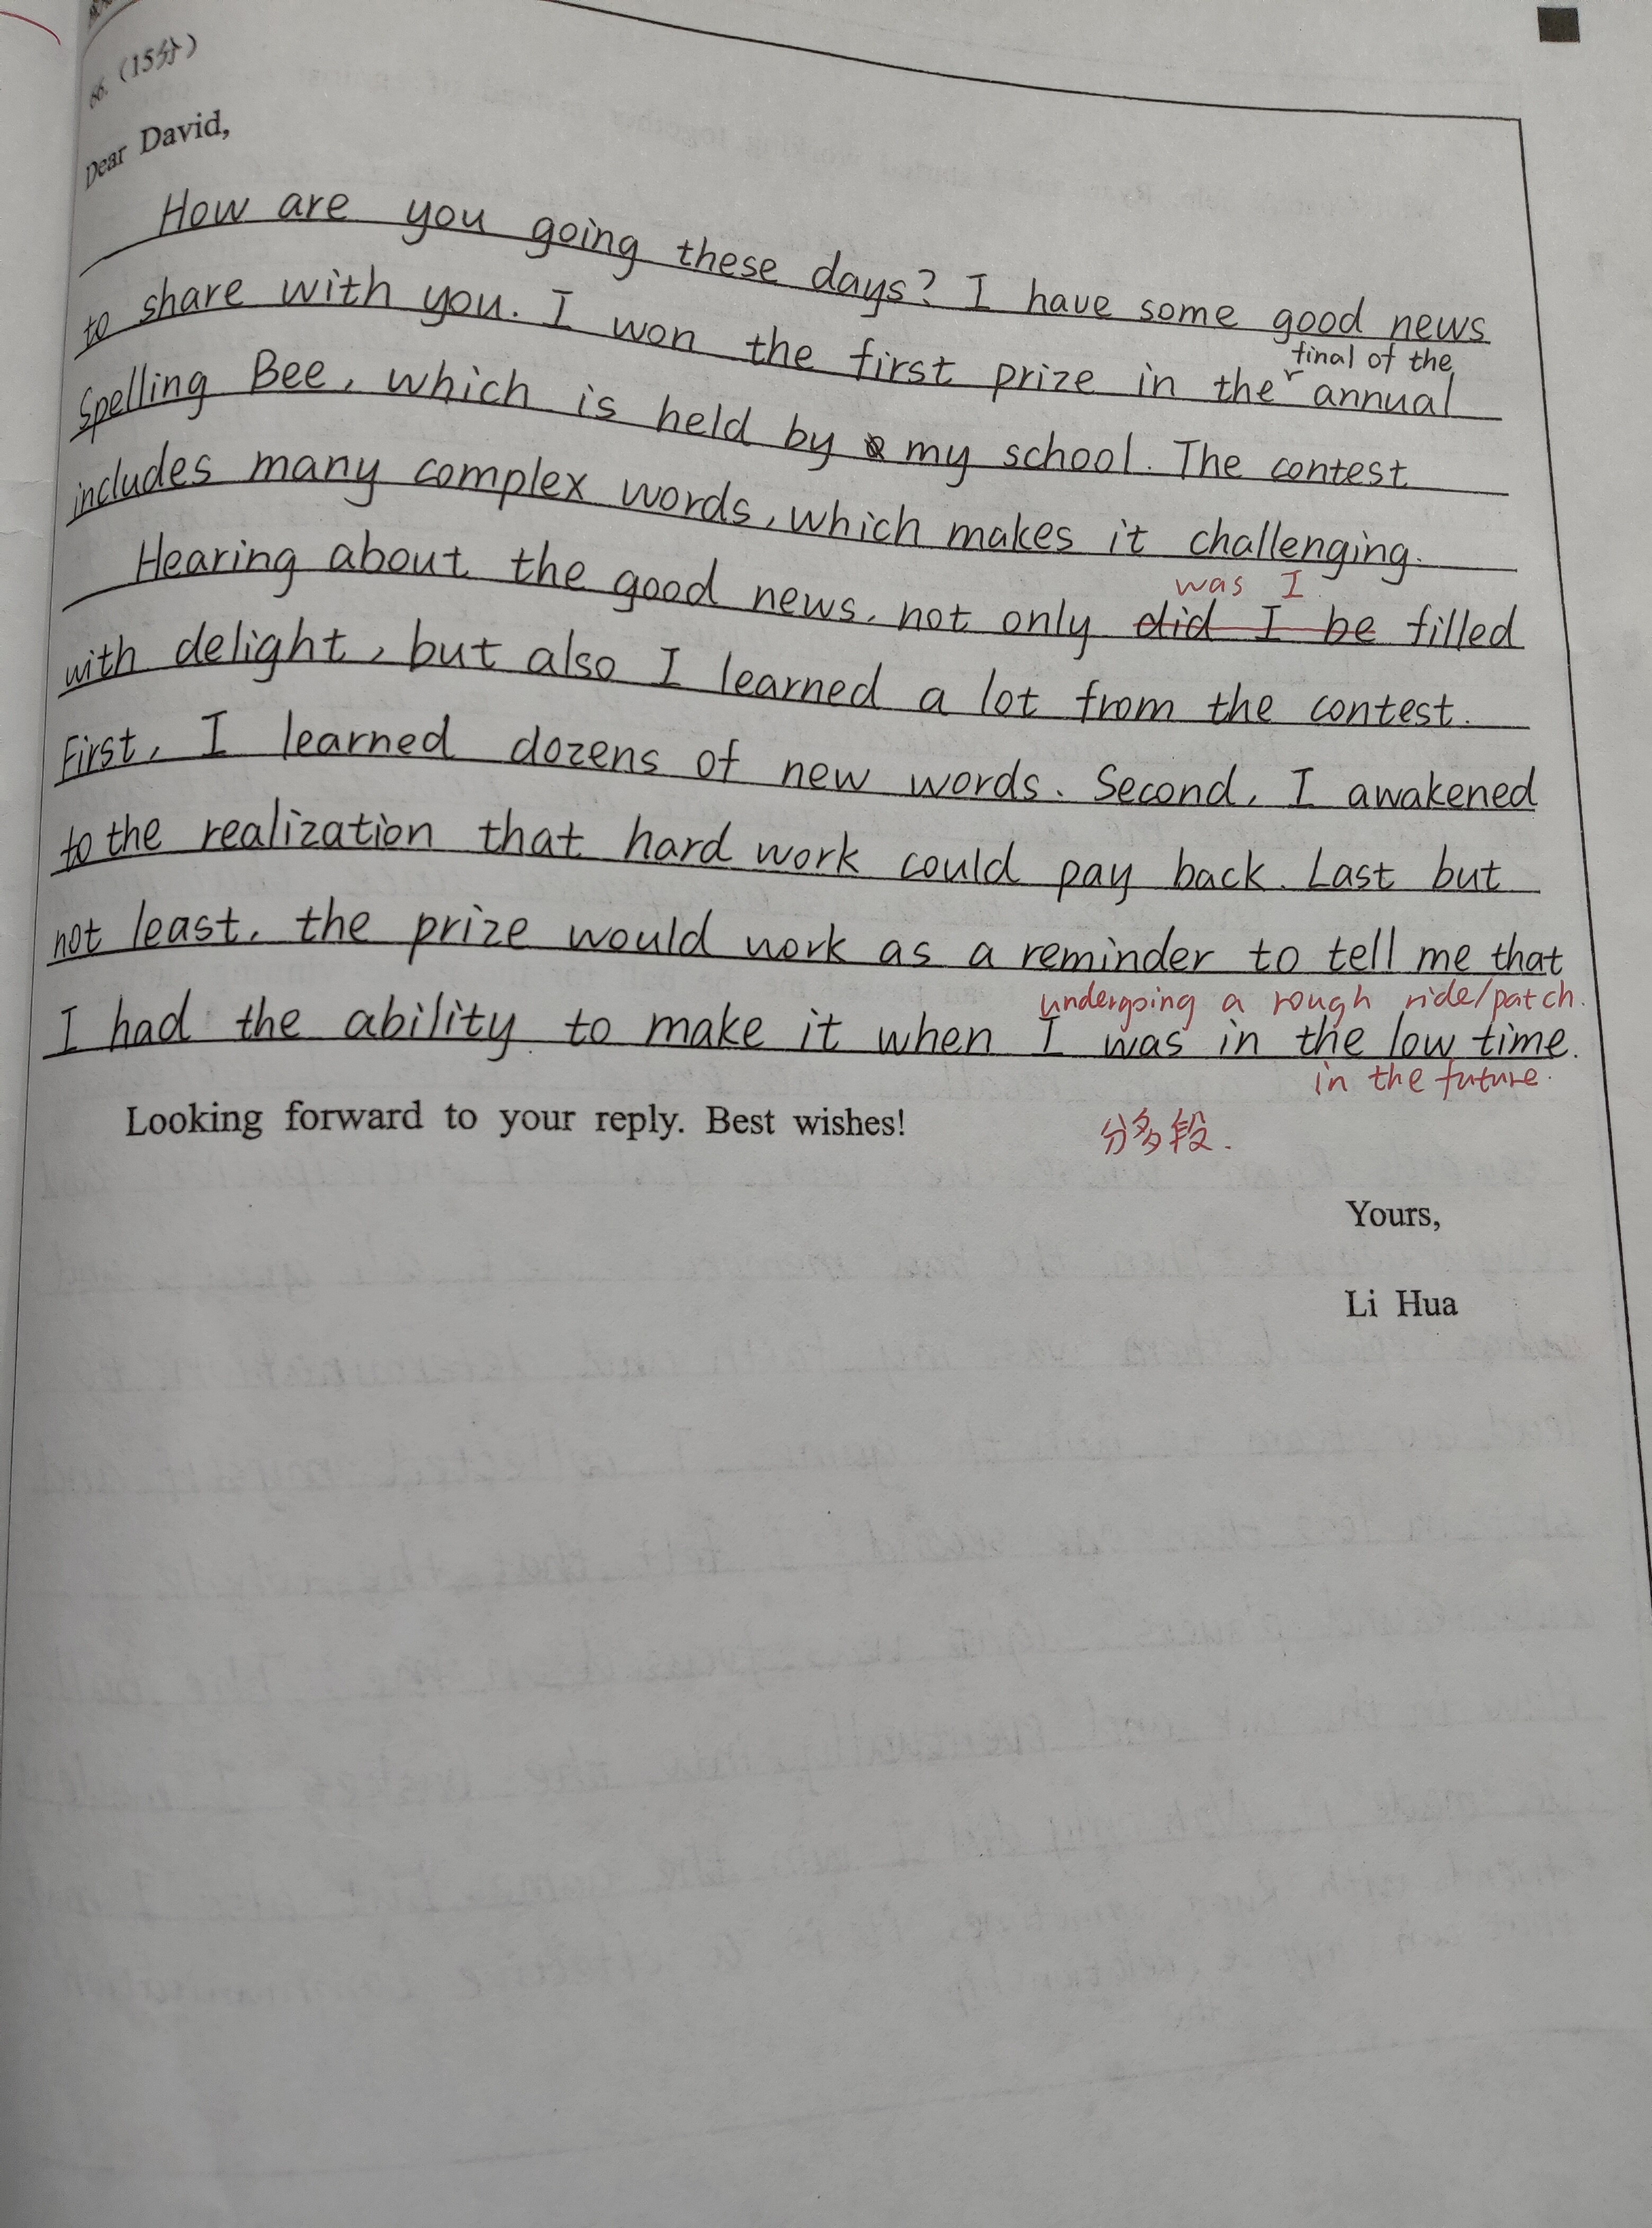 66. (15分)
Dear David,
How are you going these days? I have some good news
to share with you. I won the first prize in the final of the annual
Spelling Bee, which is held by my school. The contest
includes many complex words, which makes it challenging.
Hearing about the good news, not only did I be filled
was I
with delight, but also I learned a lot from the contest.
First, I learned dozens of new words. Second, I awakened
to the realization that hard work could pay back. Last but
not least, the prize would work as a reminder to tell me that
undergoing a rough ride/patch.
I had the ability to make it when I was in the low time.
in the future.
Looking forward to your reply. Best wishes!
分多段.
Yours,
Li Hua